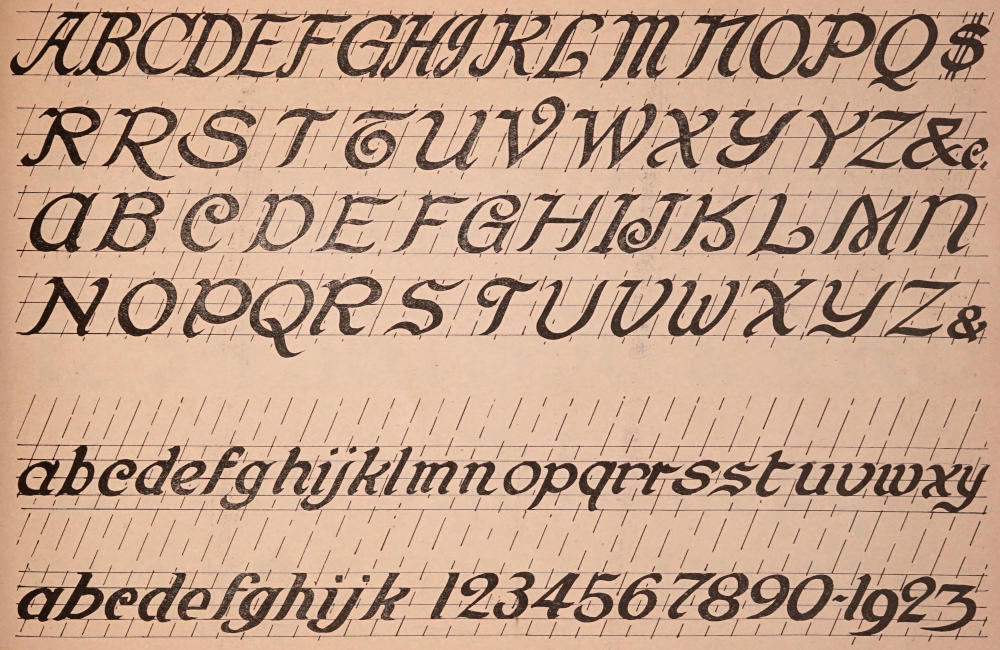 ABCDEFGHIKLMNOPQ$
RRSTTUVWXYYZ&c.
ABCDEFGHIJKLMN
NOPQRSTUVWXYZ&
abcdefghijklmnopqrrsstuvwxy
abcdefghijk 1234567890-1923